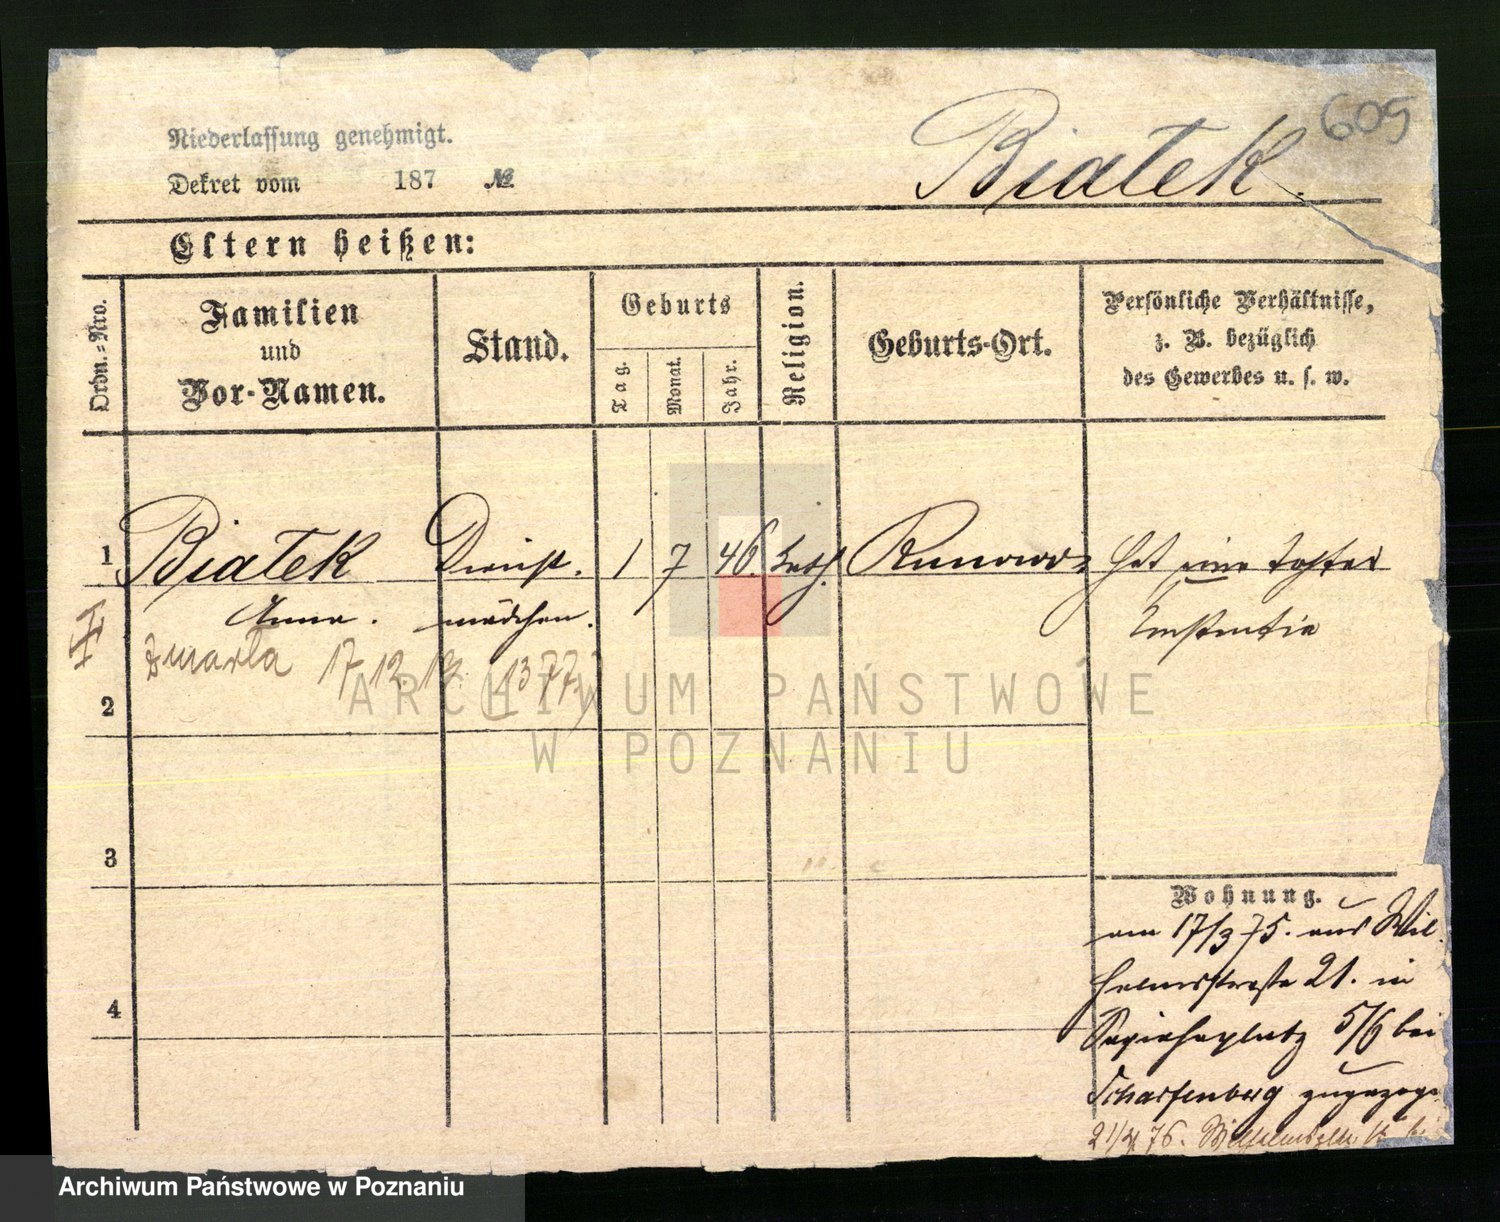 605
Niederlassung genehmigt.
Dekret vom 187 №
Białek.
Eltern heißen:
Ordn.=Nro.
Familien
und
Vor-Namen.
Stand.
Geburts
Tag.
Monat.
Jahr.
Religion.
Geburts-Ort.
Persönliche Verhältnisse,
z. B. bezüglich
des Gewerbes u. s. w.
1 Białek Dienst. 1 7 46 kath. Runowo hat eine Tochter
Anna. mädchen.
zmarła 17 12
2
3
4
Wohnung.
am 17/3 75. aus Wil
helmsstraße 21. in
Sapiehaplatz 5/6 bei
Scharfenberg zugezoge
76.
ARCHIWUM PAŃSTWOWE
W POZNANIU
Archiwum Państwowe w Poznaniu